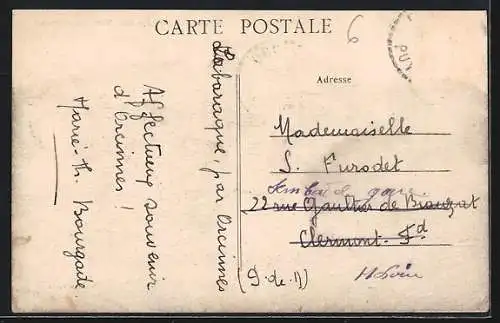 CARTE POSTALE
6
PUY
Adresse
Labaraque, par Orcinnes
Affectueux souvenir
d'Orcinnes !
Marie-Th. Bourgade.
Mademoiselle
S. Furodet
gare
22 rue Gaultier de Biauzat
Clermont-Fd
(P-de-D)